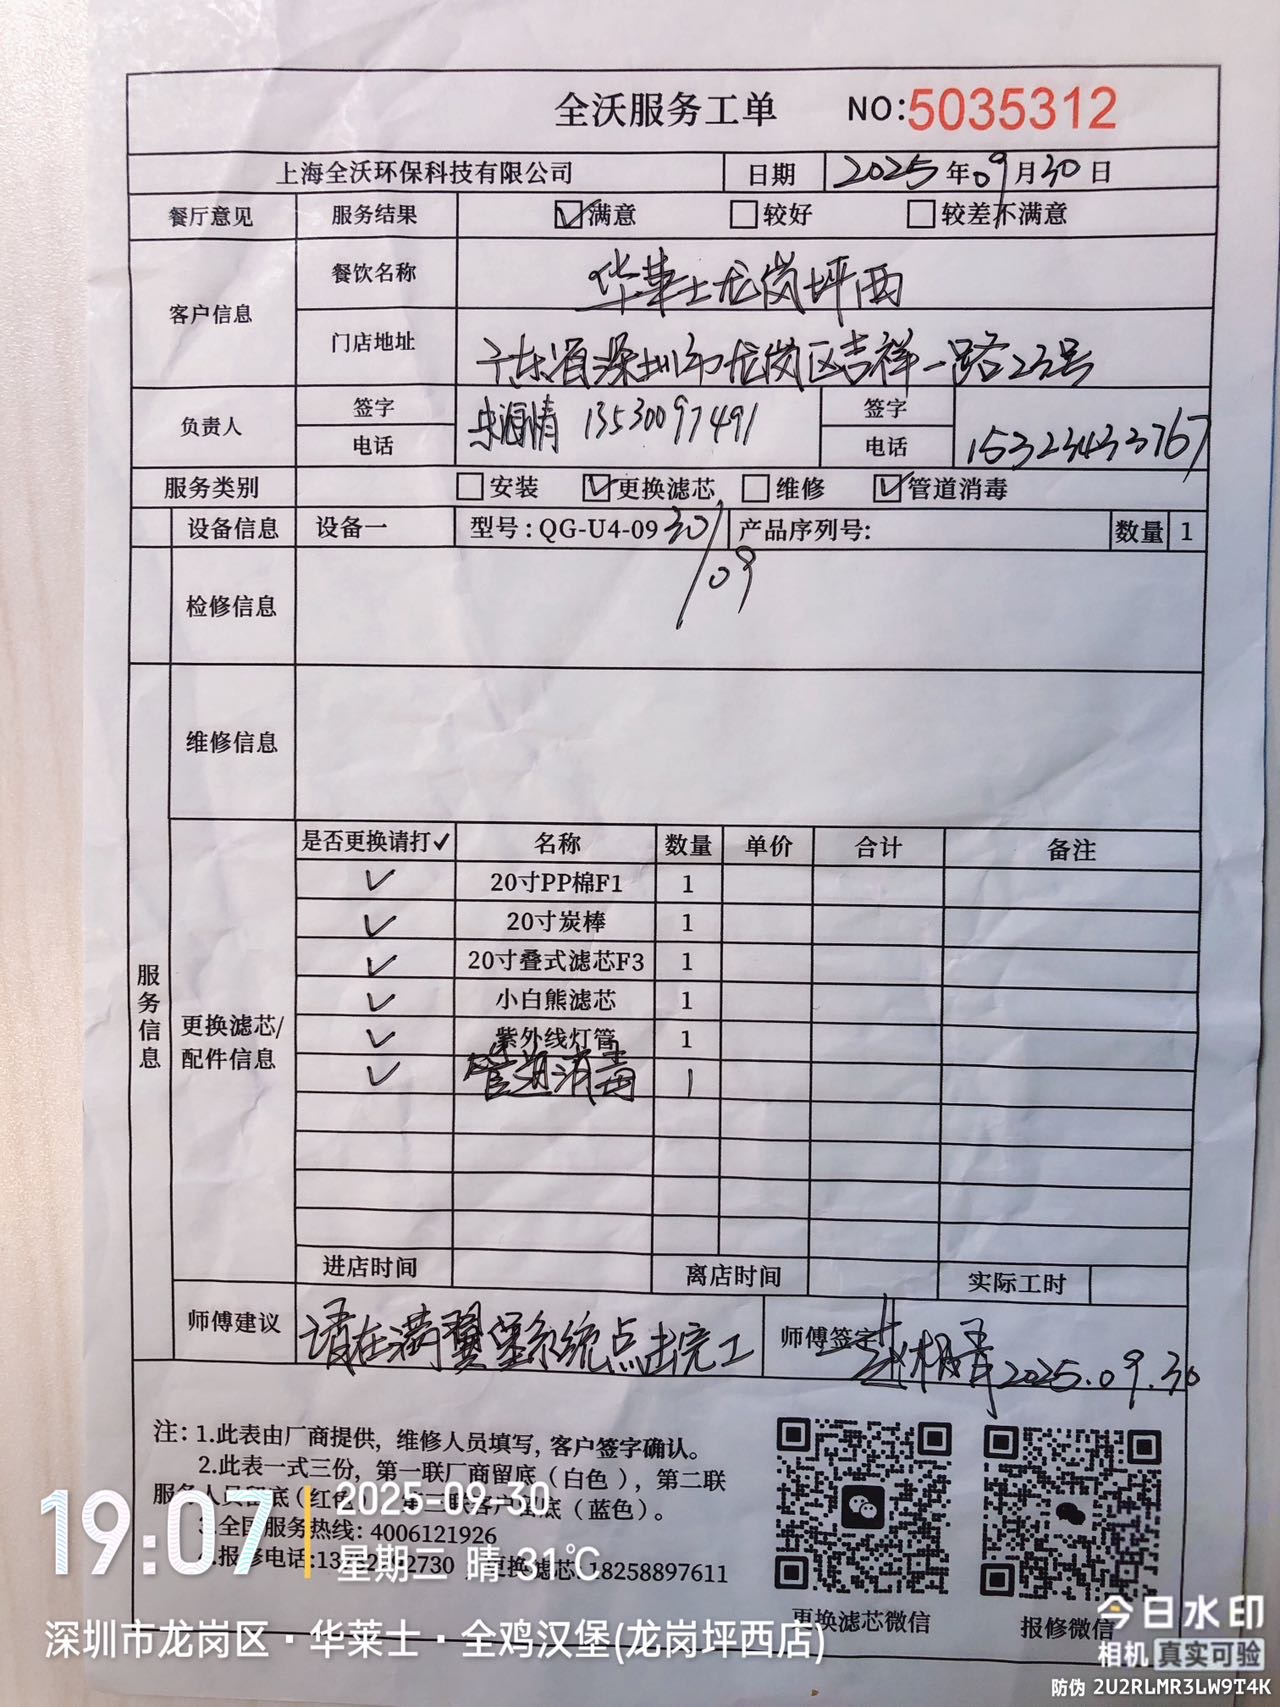 全沃服务工单 NO:5035312
上海全沃环保科技有限公司 日期 2025年09月30日
餐厅意见 服务结果 满意 较好 较差不满意
客户信息 餐饮名称 华莱士龙岗坪西
门店地址 广东省深圳市龙岗区吉祥一路23号
负责人 签字 电话 13530097491 签字 电话 15323433767
服务类别 安装 更换滤芯 维修 管道消毒
设备信息 设备一 型号：QG-U4-09 30/09 产品序列号： 数量 1
检修信息
维修信息
服务信息
更换滤芯/配件信息
是否更换请打✓ 名称 数量 单价 合计 备注
✓ 20寸PP棉F1 1
✓ 20寸炭棒 1
✓ 20寸叠式滤芯F3 1
✓ 小白熊滤芯 1
✓ 紫外线灯管 1
✓ 管道消毒 1
进店时间 离店时间 实际工时
师傅建议 请在满翼堡系统点击完工 师傅签字 2025.09.30
注：1.此表由厂商提供，维修人员填写，客户签字确认。
2.此表一式三份，第一联厂商留底（白色），第二联
服务人员留底（红色），第三联客户留底（蓝色）。
3.全国服务热线：4006121926
4.报修电话:13 2730 更换滤芯:18258897611
更换滤芯微信 报修微信
19:07 2025-09-30
星期二 晴 31℃
深圳市龙岗区·华莱士·全鸡汉堡(龙岗坪西店)
今日水印
相机 真实可验
防伪 2U2RLMR3LW9T4K